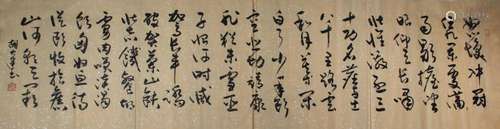 怒髮衝冠
憑闌處瀟瀟
雨歇擡望
眼仰天長嘯
壯懷激烈三
十功名塵與土
八千里路雲
和月莫等閒
白了少年頭
空悲切靖康
恥猶未雪臣
子恨何時滅
駕長車踏
破賀蘭山缺
壯志飢餐胡
虜肉笑談渴
飲匈奴血待
從頭收拾舊
山河朝天闕